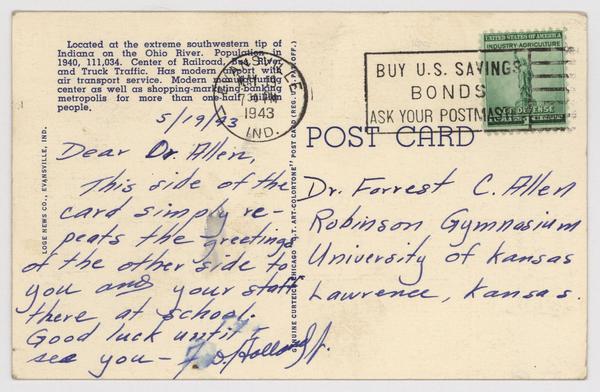 Located at the extreme southwestern tip of
Indiana on the Ohio River. Population in
1940, 111,034. Center of Railroad, Bus, River
and Truck Traffic. Has modern airport with
air transport service. Modern manufacturing
center as well as shopping-marketing-banking
metropolis for more than one-half million
people.
EVANSVILLE
7 30 PM
1943
IND.
BUY U.S. SAVINGS
BONDS
ASK YOUR POSTMASTER
UNITED STATES OF AMERICA
INDUSTRY-AGRICULTURE
FOR DEFENSE
POST CARD
LOGE NEWS CO., EVANSVILLE, IND.
GENUINE CURTEICH-CHICAGO "C.T. ART-COLORTONE" POST CARD (REG. U.S. PAT. OFF.)
5/19/43
Dear Dr. Allen,
This side of the
card simply re-
peats the greetings
of the other side to
you and your staff
there at school.
Good luck until I
see you - F. D. Holland Jr.
Dr. Forrest C. Allen
Robinson Gymnasium
University of Kansas
Lawrence, Kansas.